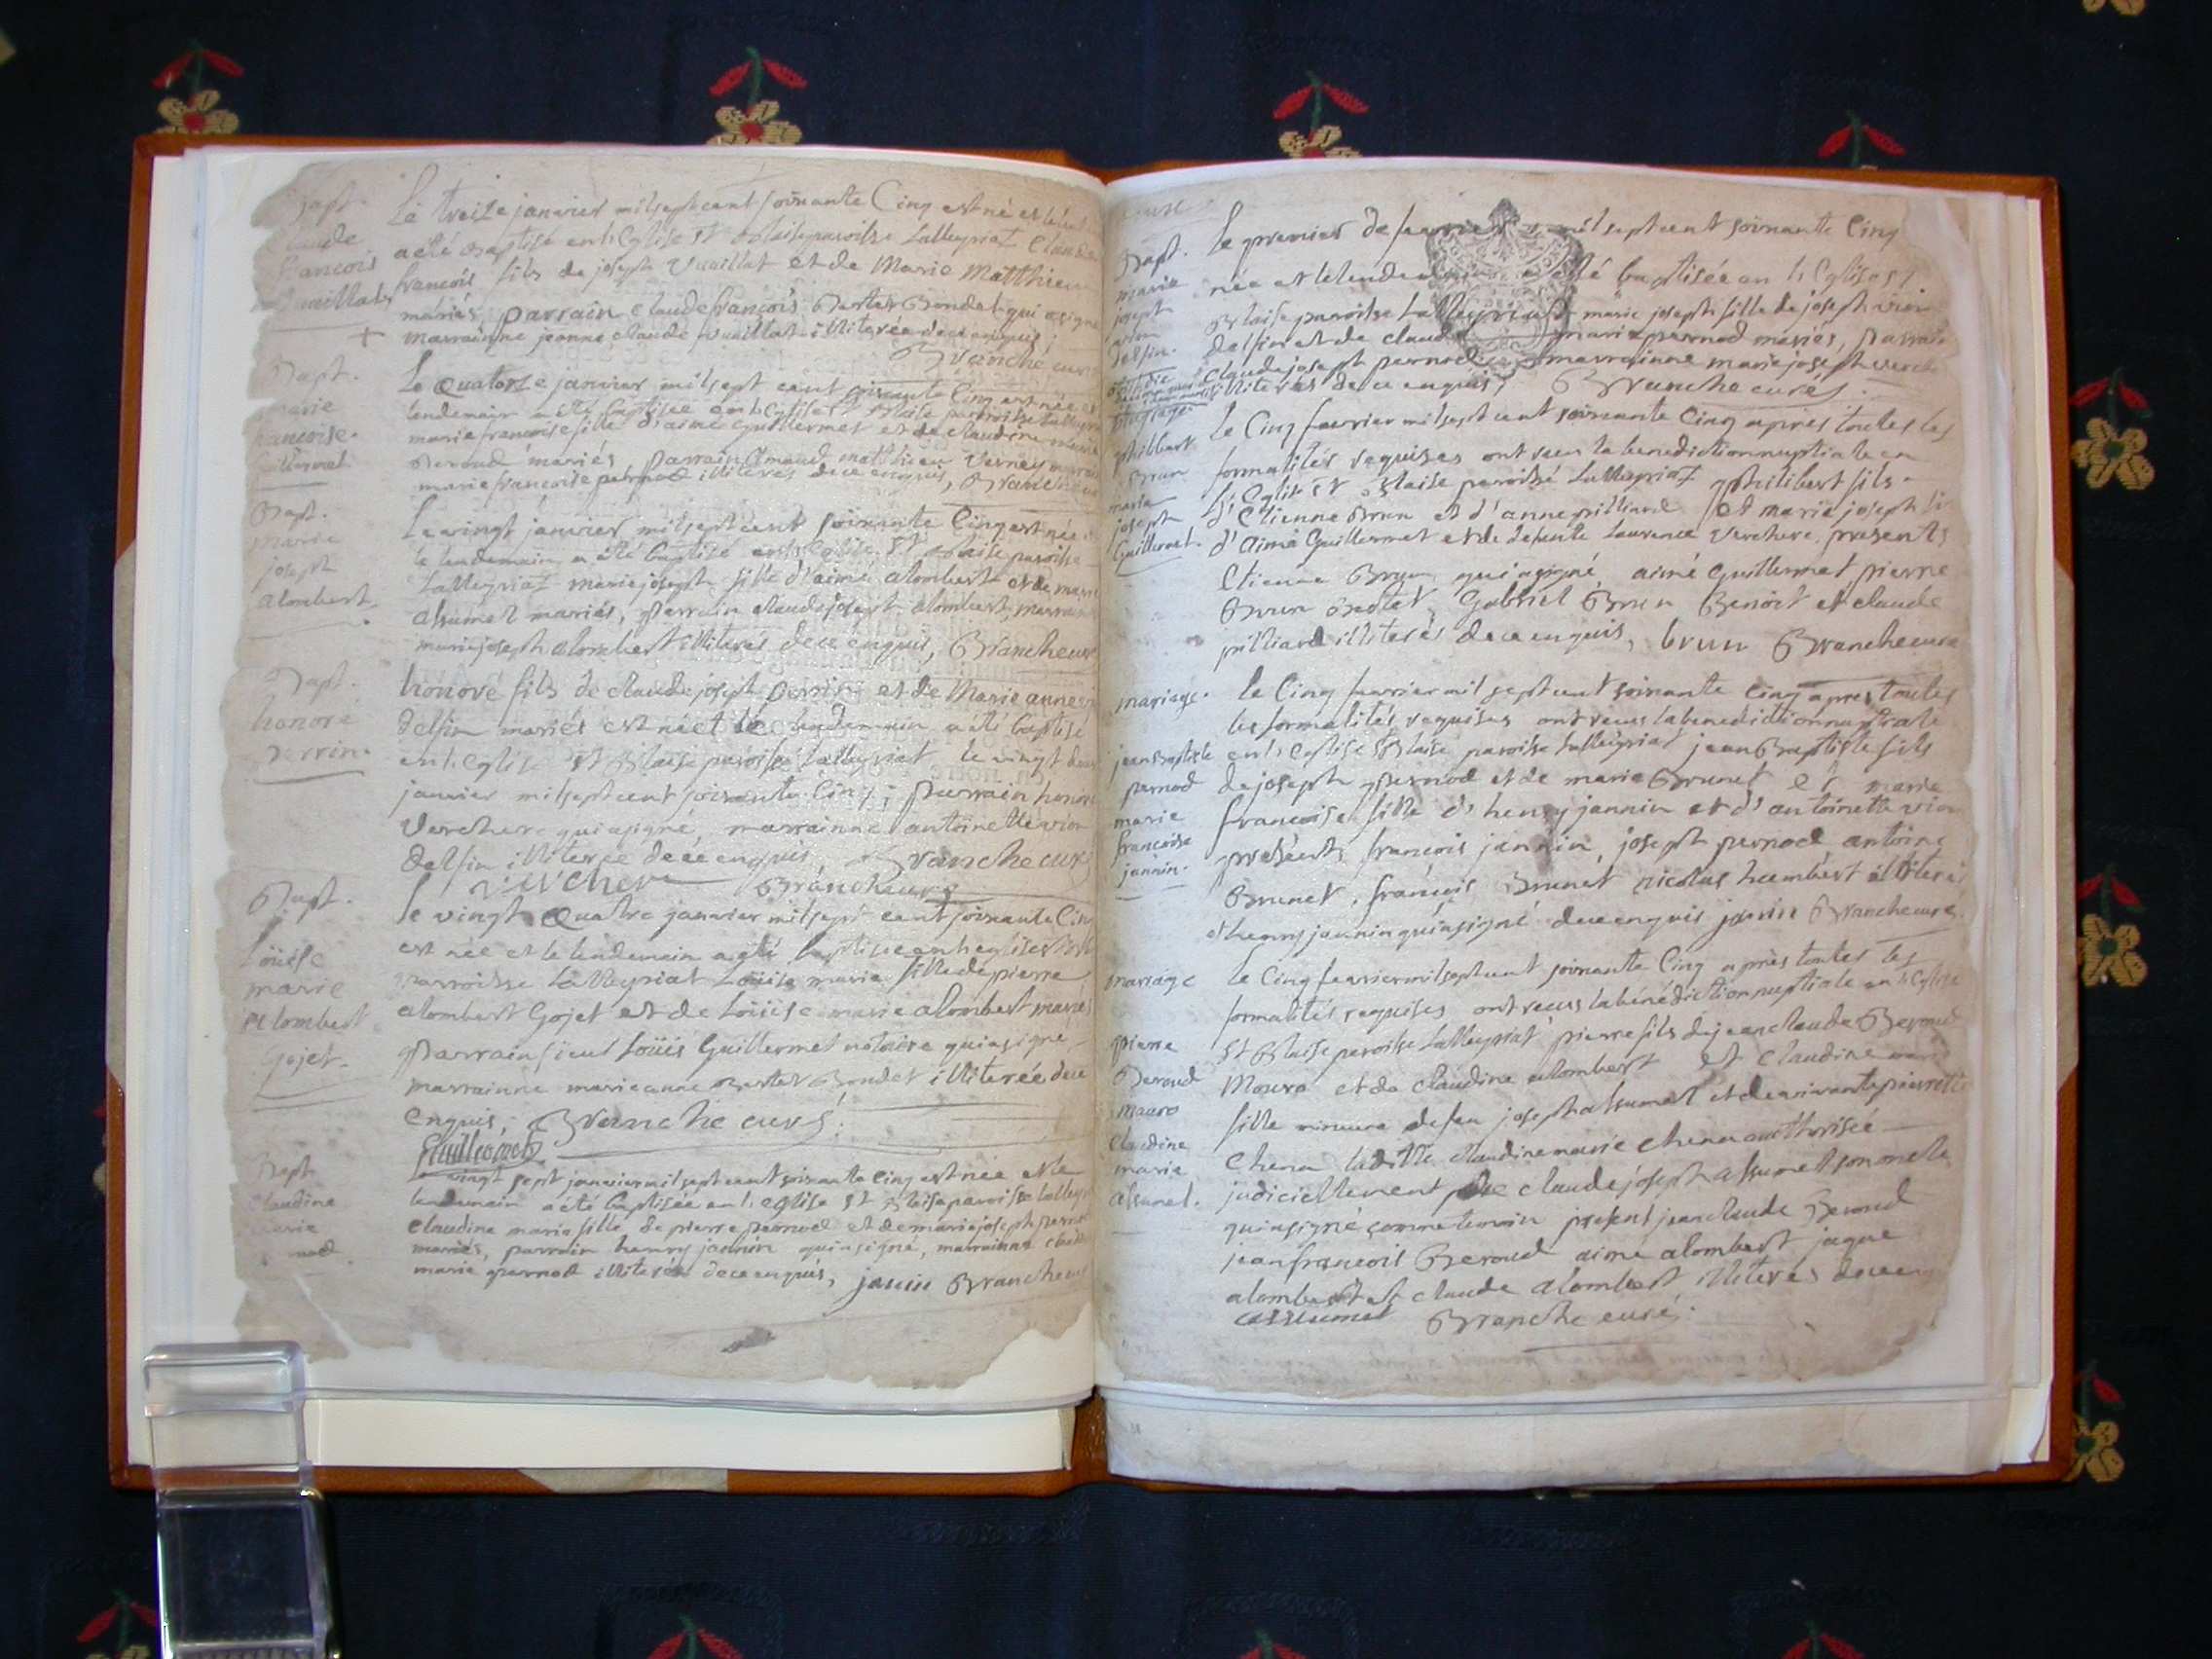 Bapt.
Claude
francois
vuillat
Le treize janvier mil sept cent soixante Cinq est né et le lend
a été Baptisé en l'Eglise St Blaise paroisse Lalleyriat Claude
francois fils de joseph Vuaillat et de Marie Matthieu
mariés, parrain claude francois Bertet Bondet qui a signé
marrainne jeanne claude vuaillat illiterée de ce enquis;
Branche curé
Bapt.
marie
francoise
Guillermet
Le Quatorze janvier mil sept cent soixante Cinq est née et
lendemain a été Baptisée en l'eglise St Blaise paroisse Lalleyriat
marie francoise fille d'aimé Guillermet et de claudine marie
Beroud mariés, parrain matthieu Verney
marie francoise pernod illiterés de ce enquis, Branche
Bapt.
marie
joseph
alombert
Le vingt janvier mil sept cent soixante Cinq est née
le lendemain a été Baptisé en l'Eglise St Blaise paroisse
Lalleyriat marie joseph fille d'aimé alombert et de marie
assumel mariés, parrain claude joseph alombert, marrainne
marie joseph alombert illiterés de ce enquis, Branche curé
Bapt.
honoré
perrin
honoré fils de claude joseph perrin et de Marie anne
delfin mariés est né et le lendemain a été Baptisé
en l'Eglise St Blaise paroisse Lalleyriat le vingt deux
janvier mil sept cent soixante Cinq; parrain honoré
Verchere qui a signé, marrainne antoinette vion
delfin illiterée de ce enquis, Branche curé
vercher Branche curé
Bapt.
Loüise
marie
alombert
Gojet
le vingt Quatre janvier mil sept cent soixante Cinq
est née et le lendemain a été baptisée en l'eglise St
parroisse Lalleyriat Loüise marie fille de pierre
alombert Gojet et de Loüise marie alombert mariés
parrain sieur Loüis Guillermet notaire qui a signé
marrainne marie anne Bertet Bondet illiterée de ce
enquis; Branche curé;
Guillermet
Bapt
claudine
marie
pernod
Le vingt sept janvier mil sept cent soixante Cinq est née et le
lendemain a été baptisée en l'eglise St Blaise paroisse Lalleyriat
claudine marie fille de pierre pernod et de marie joseph pernod
mariés, parrain henry jannin qui a signé, marrainne
marie pernod illiterée de ce enquis, janin Branche curé
Bapt.
marie
joseph
vion
delfin
le premier de fevrier mil sept cent soixante Cinq
née et le lendemain a été baptisée en l'Eglise St
Blaise paroisse Lalleyriat marie joseph fille de joseph vion
delfin et de claudine marie pernod mariés, parrain
claude joseph pernod marrainne marie joseph
illiterés de ce enquis, Branche curé.
mariage
philibert
Brun
marie
joseph
Guillermet
le Cinq fevrier mil sept cent soixante Cinq apres toutes les
formalités requises ont reçus la benediction nuptiale en
l'Eglise St Blaise paroisse Lalleyriat philibert fils
d'Etienne Brun et d'anne pilliard et marie joseph
d'Aimé Guillermet et de defunte Laurence Verchere. presents
Etienne Brun qui a signé, aimé Guillermet, pierre
Brun Bertet, Gabriel Brun Benoit et claude
pilliard illiterés de ce enquis, brun Branche curé
mariage
jean baptiste
pernod
marie
francoise
jannin
le Cinq fevrier mil sept cent soixante cinq apres toutes
les formalités requises ont reçus la benediction nuptiale
en l'Eglise St Blaise paroisse Lalleyriat jean Baptiste fils
de joseph pernod et de marie Brunet et marie
francoise fille d'henry jannin et d'antoinette vion
présents, francois jannin, joseph pernod antoine
Brunet, francois Brunet nicolas humbert illiterés
et henry jannin qui a signé de ce enquis janin Branche curé
mariage
pierre
Beroud
mouro
claudine
marie
assumel.
le Cinq fevrier mil sept cent soixante Cinq après toutes les
formalités requises ont reçus la bénédiction nuptiale en l'Eglise
St Blaise paroisse Lalleyriat pierre fils de jean claude Beroud
Mouro et de claudine alombert et claudine marie
fille mineure de feu joseph assumel et de vivante pierrette
Chena laditte claudine marie Chena authorisée
judiciellement claude joseph assumel son oncle
qui a signé comme temoin present jean claude Beroud
jean francois Beroud aimé alombert jaque
alombert et claude alombert illiterés de ce enquis
assumel Branche curé.